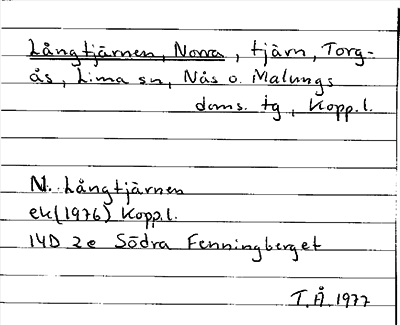 Långtjärnen, Norra, tjärn, Torg-
ås, Lima sn, Nås o. Malungs
doms. tg, Kopp.l.
N. Långtjärnen
ek (1976) Kopp.l.
14D 2e Södra Fenningberget
T.Å. 1977